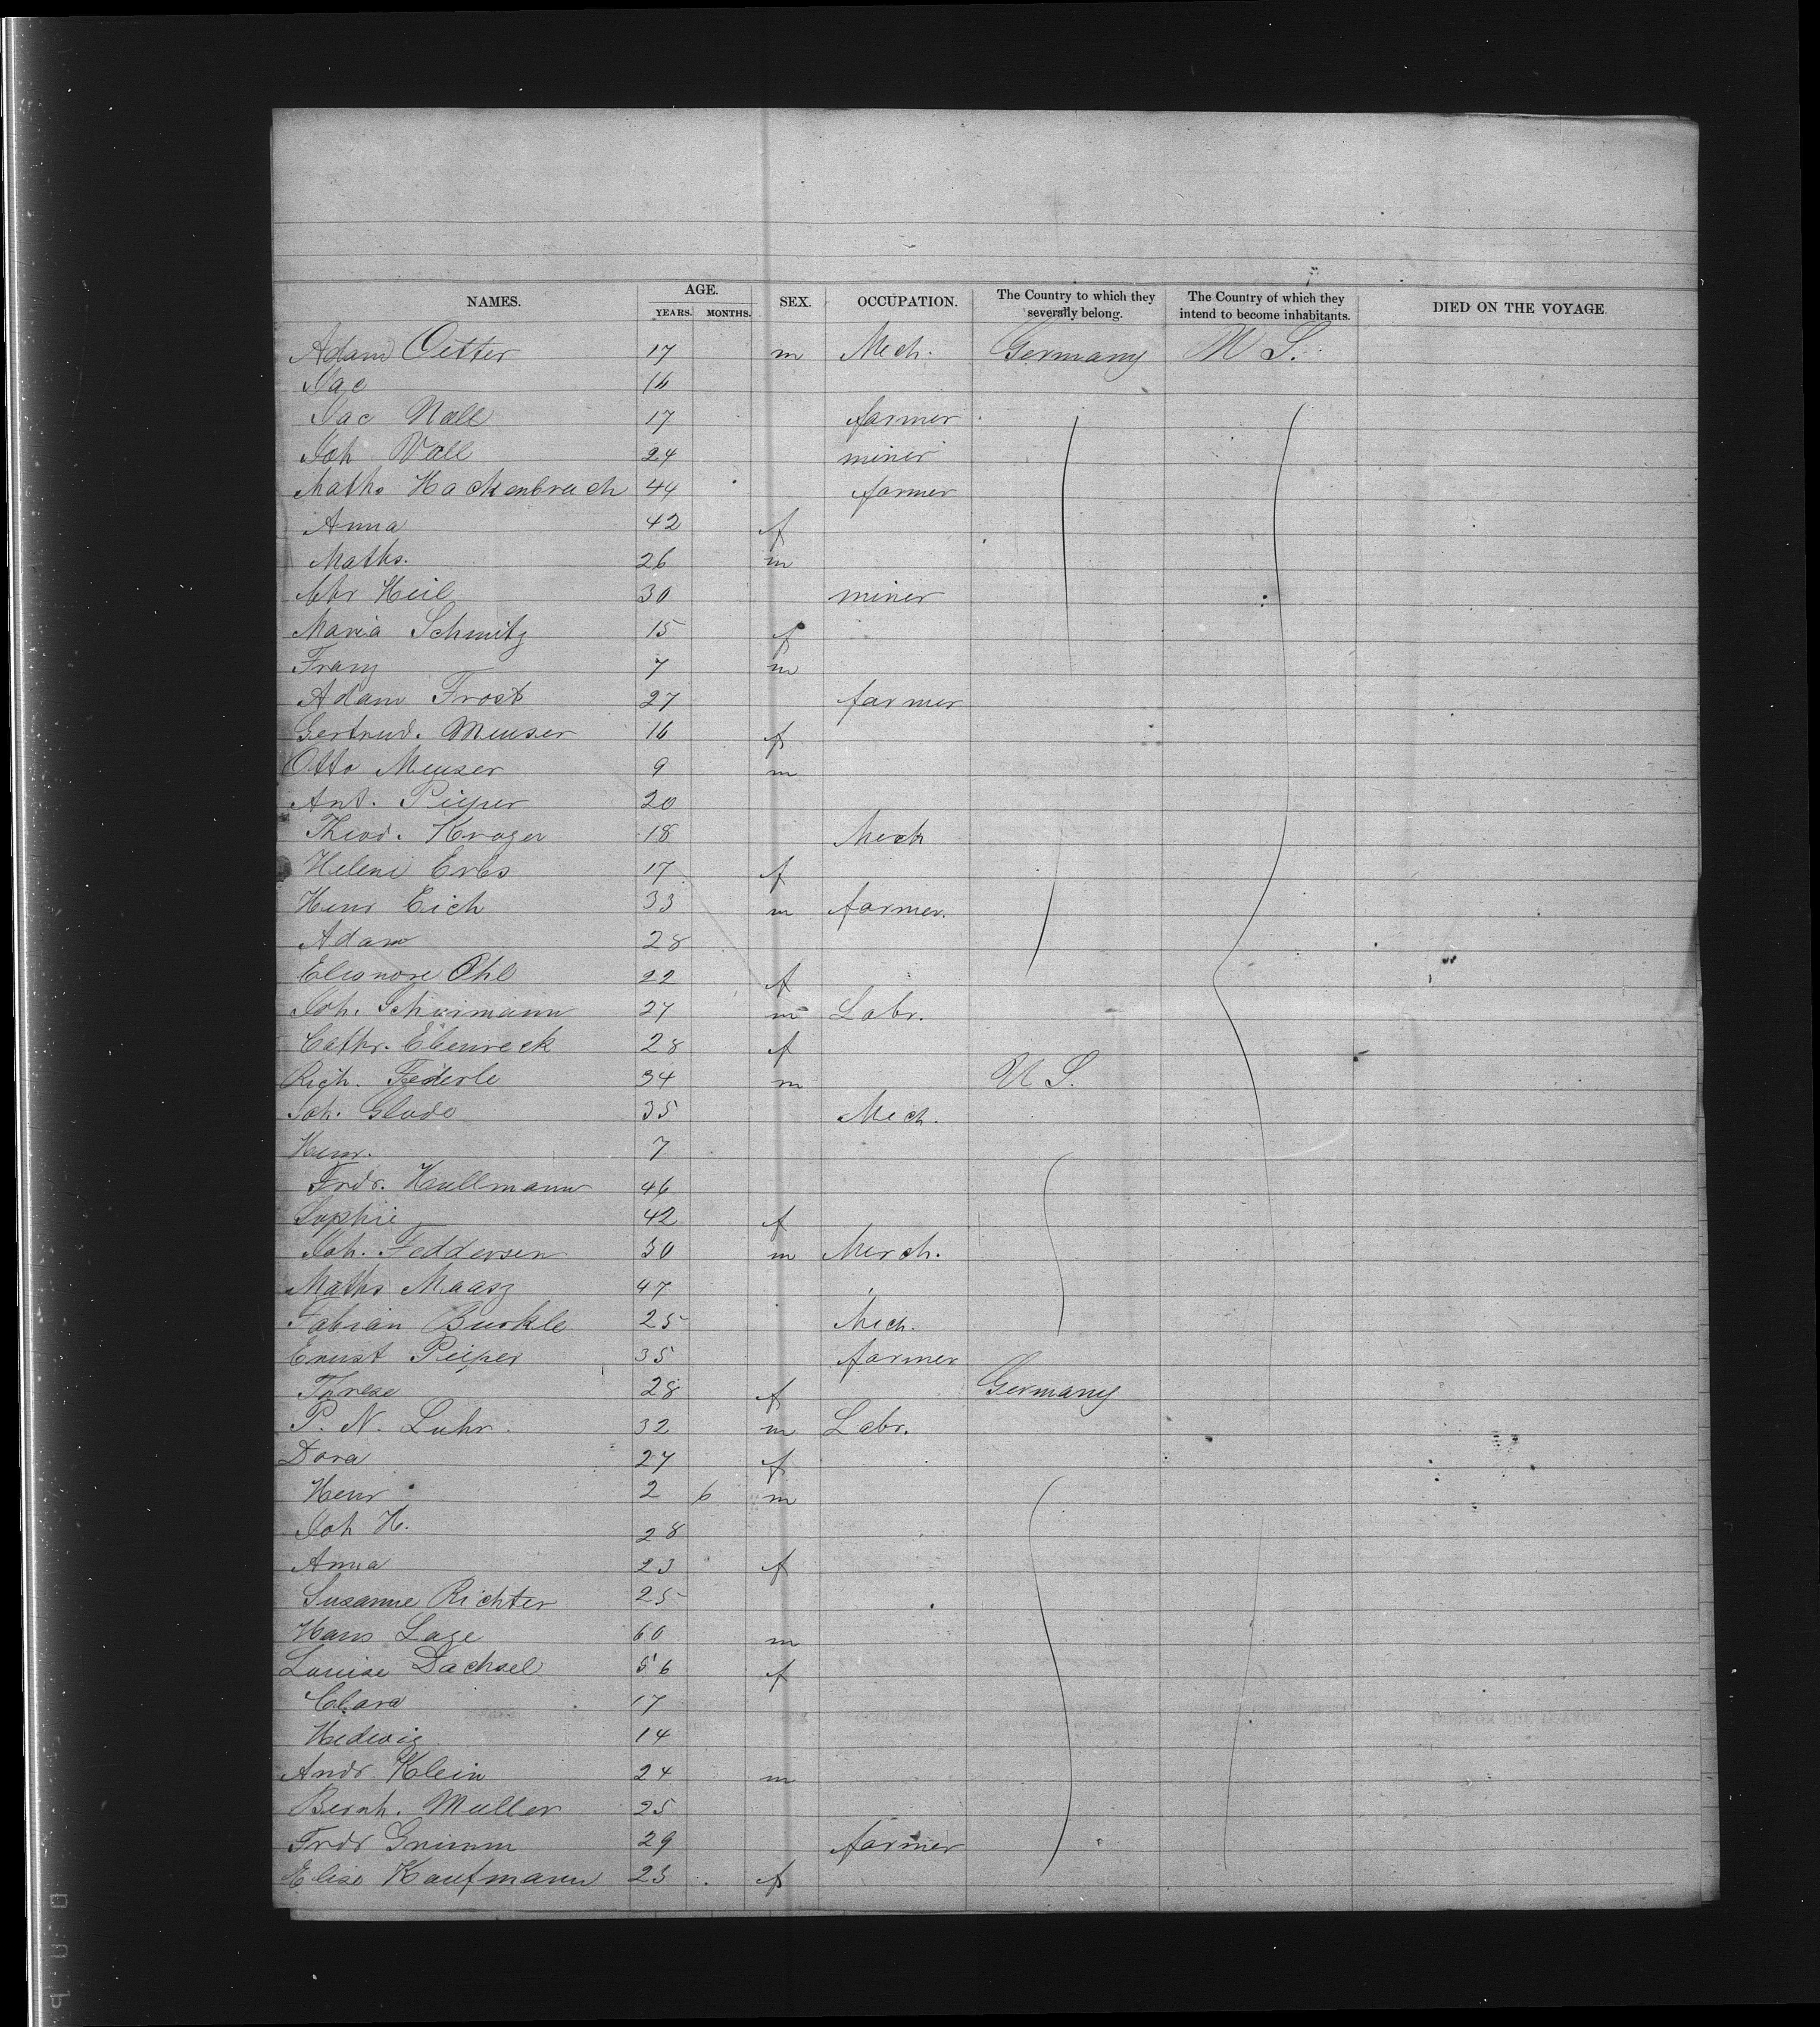 NAMES. AGE. YEARS. MONTHS. SEX. OCCUPATION. The Country to which they severally belong. The Country of which they intend to become inhabitants. DIED ON THE VOYAGE
Adam Oetter 17 m Mech. Germany U S.
Jac 16
Jac Noll 17 farmer
Joh Noll 24 miner
Maths Hackenbruch 44 farmer
Anna 42 f
Maths. 26 m
Chr Heil 30 miner
Maria Schmitz 15 f
Franz 7 m
Adam Frost 27 farmer
Gertrud. Meuser 16 f
Otto Meuser 9 m
Ant. Pieper 20
Theod. Kroger 18 Mech
Helene Erbs 17 f
Henr Eich 33 m farmer.
Adam 28
Eleonore Ohl 22 f
Joh. Schurmann 27 m Labr.
Cathr. Ebenreck 28 f
Rich. Federle 34 m U S.
Joh. Glade 35 Mech.
Henr. 7
Frdr. Hullmann 46
Sophie 42 f
Joh. Feddersen 30 m Merch.
Maths Maasz 47
Fabian Burkle 25 Mech.
Ernst Pieper 35 farmer
Threse 28 f Germany
P. N. Luhr. 32 m Labr.
Dora 27 f
Henr 2 6 m
Joh H. 28
Anna 23 f
Susanne Richter 25
Hans Lage 60 m
Louise Dachsel 56 f
Clara 17
Hedwig 14
Andr Klein 24 m
Bernh. Muller 25
Frdr Grimm 29 farmer
Elise Kaufmann 23 f